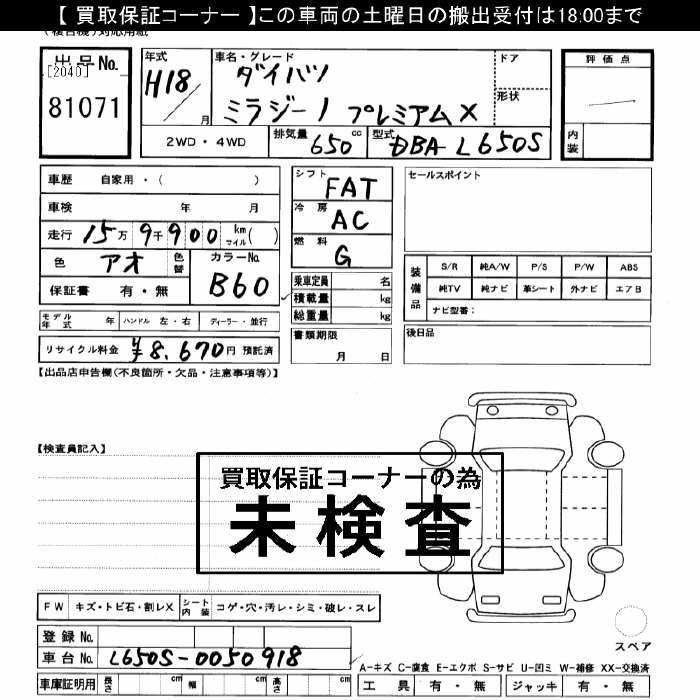 【 買取保証コーナー 】この車両の土曜日の搬出受付は18:00まで
出品No.
[2040]
81071
年式
H18
月
車名・グレード
ダイハツ
ミラジーノ プレミアムX
ドア
形状
評価点
内装
2WD・4WD
排気量 650 cc
型式 DBA-L650S
車歴 自家用・( )
車検 年 月
走行 15万9千900 km マイル( )
色 アオ 色替
カラーNo. B60
保証書 有・無
シフト FAT
冷房 AC
燃料 G
乗車定員 名
積載量 kg
総重量 kg
セールスポイント
装備品
S/R 純A/W P/S P/W ABS
純TV 純ナビ 革シート 外ナビ エアB
ナビ型番:
モデル年式 年 ハンドル 左・右 ディーラー・並行
リサイクル料金 ¥8,670円 預託済
書類期限
月 日
後日品
【出品店申告欄(不良箇所・欠品・注意事項等)】
【検査員記入】
買取保証コーナーの為
未検査
FW キズ・トビ石・割レX シート内装 コゲ・穴・汚レ・シミ・破レ・スレ
登録No.
車台No. L650S-0050918
スペア
A-キズ C-腐食 E-エクボ S-サビ U-凹ミ W-補修 XX-交換済
車庫証明用 長さ cm 幅 cm 高さ cm
工具 有・無 ジャッキ 有・無